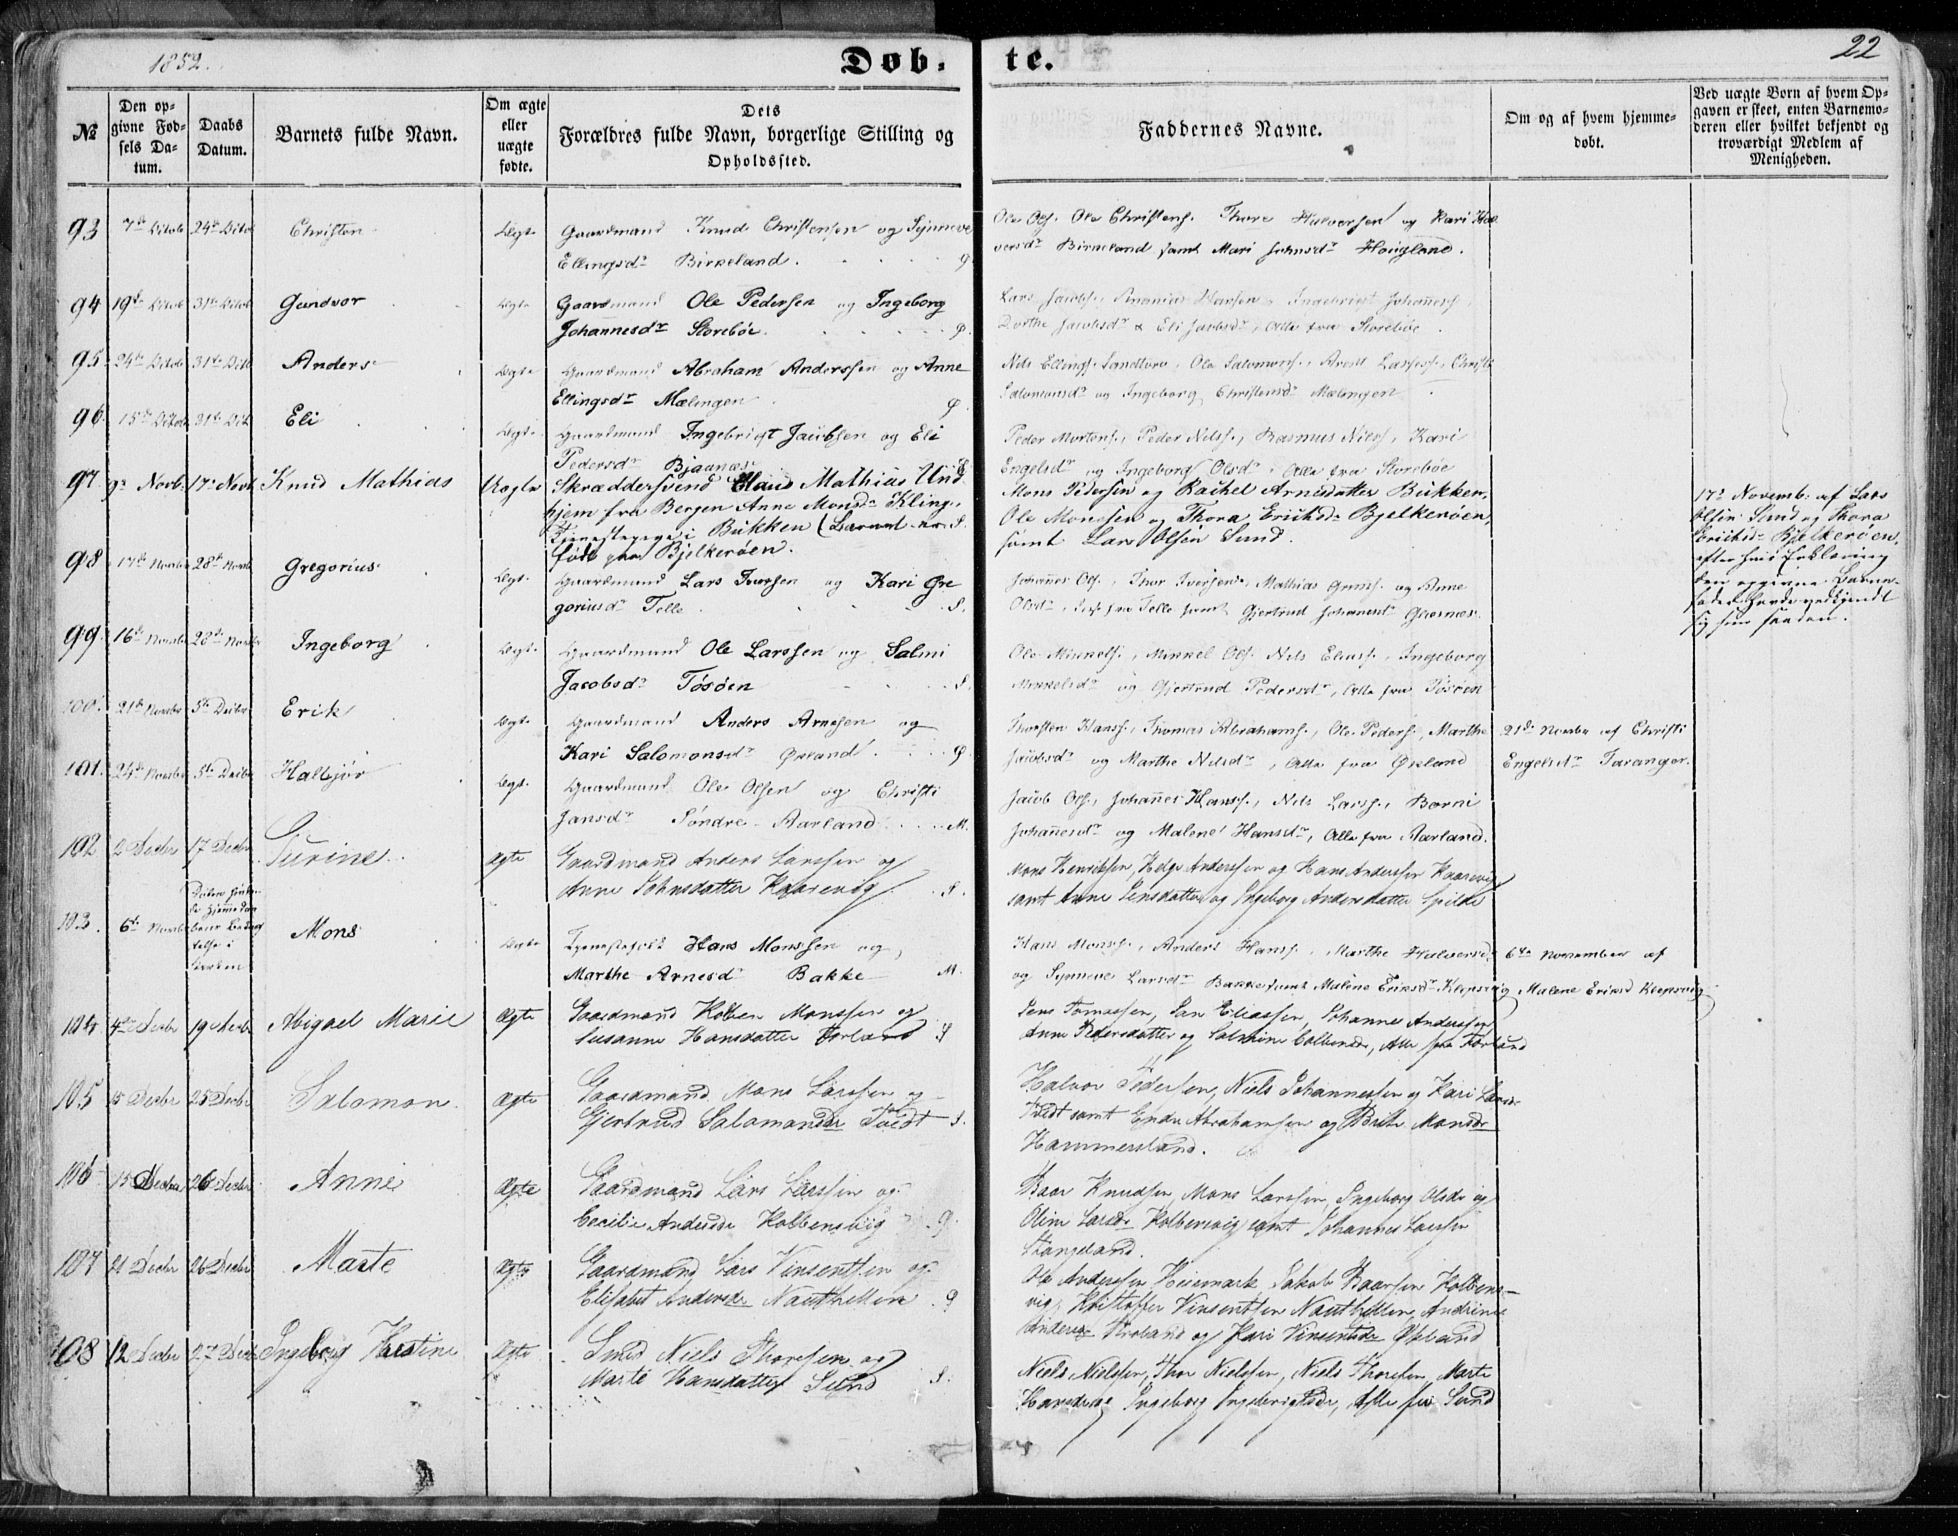 1852.
Døb-
te.
22
№
Den opgivne Fødsels Datum.
Daabs Datum.
Barnets fulde Navn.
Om ægte eller uægte fødte.
Dets Forældres fulde Navn, borgerlige Stilling og Opholdssted.
Faddernes Navne.
Om og af hvem hjemmedøbt.
Ved uægte Børn af hvem Opgaven er skeet, enten Barnemoderen eller hvilket bekjendt og troværdigt Medlem af Menigheden.
93 7de 24de Christen Ægte Gaardmand Knud Christensen og Synneve
Ellingsdr Birkeland.
Ole Ols. Ole Christens. Thore Halvorsen og Kari Hal
versdr Birkeland samt Mari Johnsdr Hougland.
94 19de 31te Gundvor Ægte Gaardmand Ole Pedersen og Ingeborg
Johannesdr Storebøe.
Lars Jacobs., Ananias Hansen, Ingebrigt Johanness.,
Dorthe Jacobsdr & Eli Jacobsdr, Alle fra Storebøe.
95 24de 31te Anders Ægte Gaardmand Abraham Anderssen og Anne
Ellingsdr Mælingen
Nils Ellings. Sandtorv, Ole Salomons., Arent Larses., Christi
Salomonsdr og Ingeborg Christensdr Mælingen.
96 15de 31te Eli Ægte Gaardmand Ingebrigt Jacobsen og Eli
Pedersdr Bjaanæs
Peder Mortens., Peder Nilss., Rasmus Nilss., Kari
Engelsdr og Ingeborg Olsdr, Alle fra Storebøe
97 9de Novb. 17de Novb Knud Mathias Uægte Skræddersvend Claus Mathias Und
hjem fra Bergen Anne Monsdr Kling,
Tjenestepige i Bukken (Barnet er
født paa Bjelkerøen.
Mons Pedersen og Rachel Arnesdatter Bukken,
Ole Monssen og Thora Eriksdr Bjelkerøen,
samt Lars Olsen Sund.
17de Novemb. af Lars
Olsen Sund og Thora
Eriksdr Bjelkerøen,
efter hvis Erklæring
den opgivne Barne-
fader havde vedkjendt
sig som saadan.
98 17de Novbr 28de Novb Gregorius Ægt. Gaardmand Lars Iverssen og Kari Gre
goriusdr Telle
Johannes Ols., Thor Iversen, Mathias Grims. og Anne
Olsdr, fra Telle samt Gjertrud Johannesdr Glesnes.
99. 16de Novbr 28de Novbr Ingeborg Ægt. Gaardmand Ole Larssen og Salmi
Jacobsdr Tøsøen
Ole Mikkels., Mikkel Ols. Nils Eliass., Ingeborg
Mikkelsdr og Gjertrud Pedersdr, Alle fra Tøsøen
100. 21de Novbr 5te Decbr Erik Ægt. Gaardmand Anders Arnesen og
Kari Salomonsdr Øxland
Thorsten Hanss., Thomas Abrahams., Ole Peders., Marthe
Jacobsdr og Marthe Nilsdr, Alle fra Øxland
21de Novbr af Christi
Engelsdr Taranger.
101. 24de Novbr 5te Decbr Haltjør Ægt. Gaardmand Ole Olsen og Christi
Jansdr Søndre Aarland M.
Jacob Ols., Johannes Hanss., Nils Larss., Barni
Johannesdr og Malene Hansdr, Alle fra Aarland.
102 2 Decbr 17 Decbr Surine Ægte Gaardmand Anders Larssen og
Anne Johnsdatter Kaarevig S.
Mons Henrikssen, Helge Anderssen og Hans Anderssen Kaarevig
samt Anne Jensdatter og Ingeborg Andersdatter Spilde
103. 6te Novbr Mons Ægte Tjenestefolk Hans Monssen og
Marthe Arnesdr Bakke M.
Hans Monss., Anders Hanss., Marthe Halversdr
og Synneve Larsdr Bakke samt Malene Eriksdr Klepsvig
6te November af
Malene Eriksd Klepsvig
104 4de Decbr 19 Decbr Abigael Marie Ægte Gaardmand Kolben Monssen og
Susanne Hansdatter Førland S
Jens Tomassen, Jan Eliassen, Johannes Anderssen
Anne Pedersdatter og Salmine Colbensdr, Alle fra Førland
105 15 Decbr 25 Decbr Salomon Ægte Gaardmand Mons Larssen og
Gjertrud Salamonsdr Tvedt S.
Halvor Pedersen, Niels Johannessen og Kari Larsdr
Tvedt samt Endre Abrahamsen og Brite Monsdr
Hammersland.
106 15 Decbr 26 Decbr Anne Ægte Gaardmand Lars Larssen og
Cecilie Andersdr Kolbensvig
Baar Knudsen, Mons Larssen, Ingeborg Olsdr og
Oline Larsdr Kolbensvig samt Johannes Larssen
Stangeland.
107 21 Decbr 26 Decbr Marte Ægte Gaardmand Lars Vinsentsen og
Elisabet Andersdr Nauthellen
Ole Anderssen Heiemark Jakob Baarsen Kolbens-
vig, Kristoffer Vinsentsen Nauthellen, Andrine
Andersdr og Kari Vinsentsdr Øxland
108 12 Decbr 27 Decbr Ingeborg Kristine Ægte Smed Niels Thoresen og
Marte Hansdatter Sund S.
Niels Nielssen, Thor Nielssen, Niels Thoresen, Marte
Hansdr og Ingeborg Ingebrigtsdr, Alle fra Sund